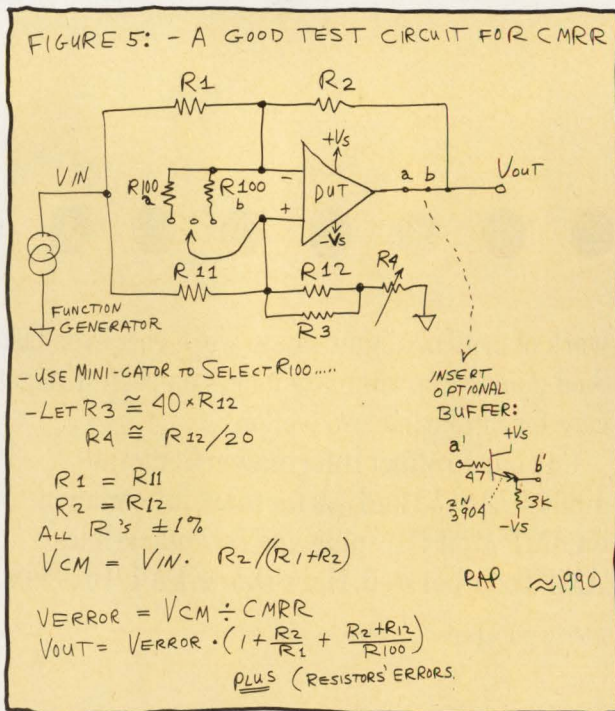 FIGURE 5: - A GOOD TEST CIRCUIT FOR CMRR
R1
R2
+Vs
VIN
R100 a
R100 b
-
+
DUT
a b
VOUT
-Vs
R11
R12
R4
R3
FUNCTION
GENERATOR
- USE MINI-GATOR TO SELECT R100.....
- LET R3 ≅ 40 × R12
R4 ≅ R12/20
R1 = R11
R2 = R12
ALL R's ±1%
VCM = VIN · R2/(R1+R2)
VERROR = VCM ÷ CMRR
VOUT = VERROR · (1 + R2/R1 + R2+R12/R100)
PLUS (RESISTORS' ERRORS.
INSERT
OPTIONAL
BUFFER:
+Vs
a'
b'
47
2N
3904
3K
-Vs
RAP ≈1990